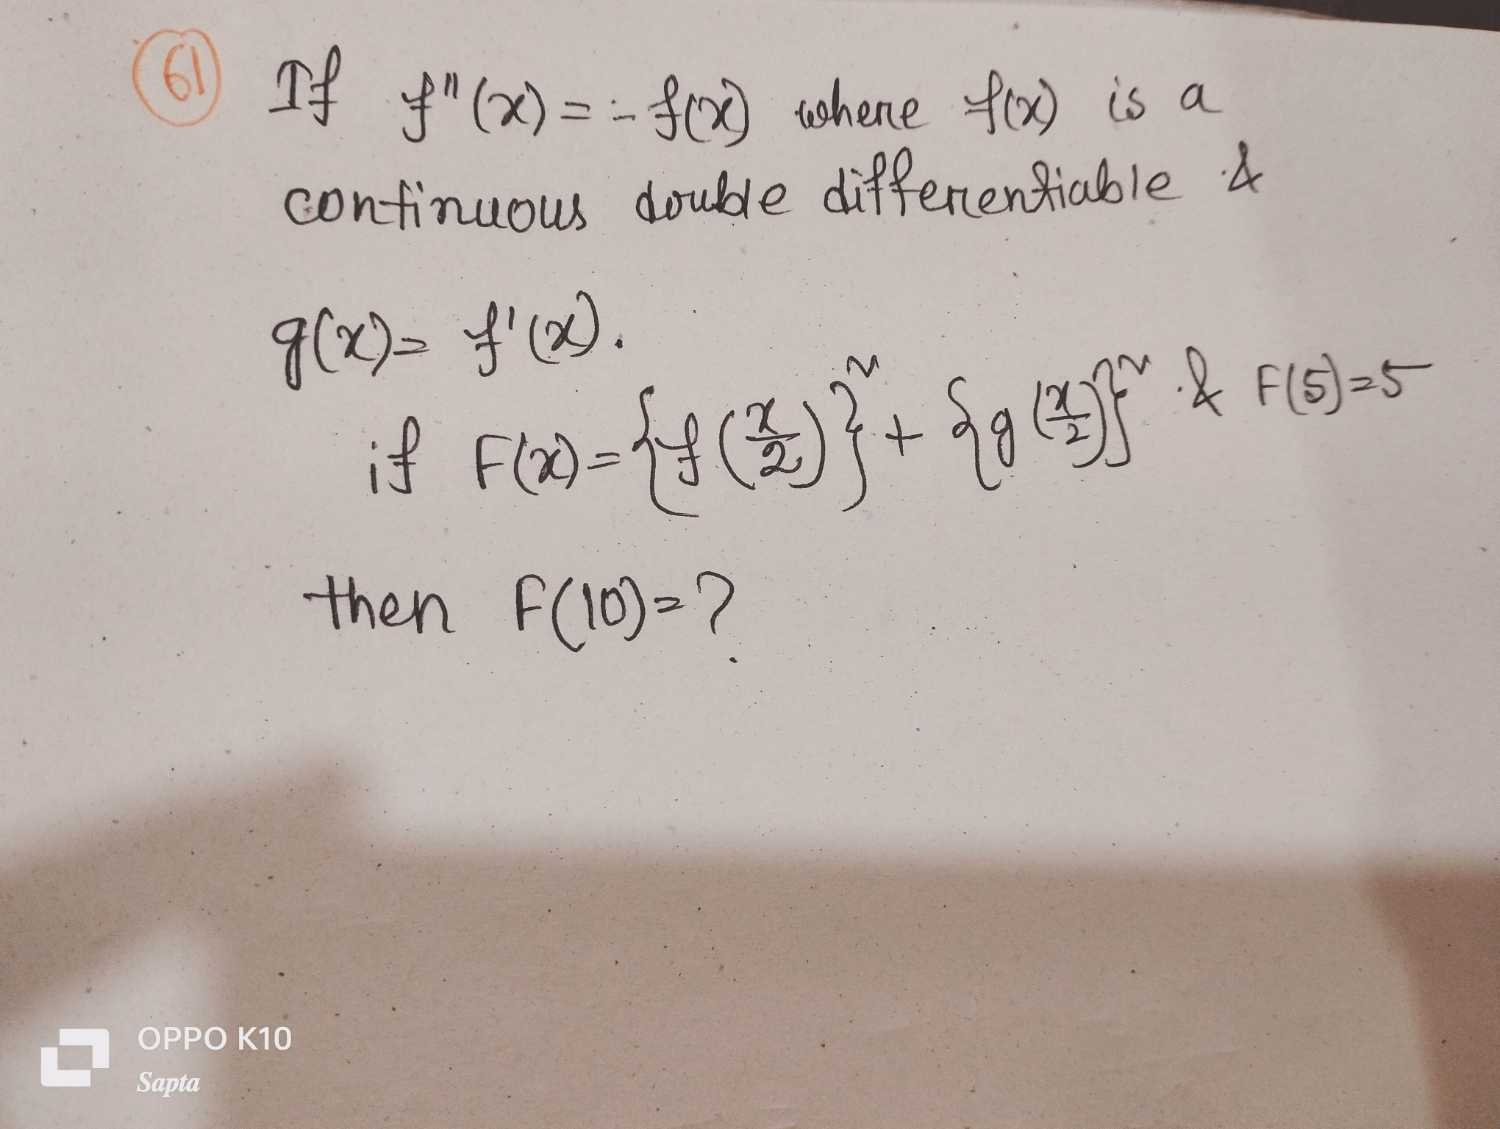 61 If f"(x) = - f(x) where f(x) is a
continuous double differentiable &
g(x) = f'(x).
if F(x) = {f(x/2)}² + {g(x/2)}² & F(5) = 5
then F(10) = ?
OPPO K10
Sapta